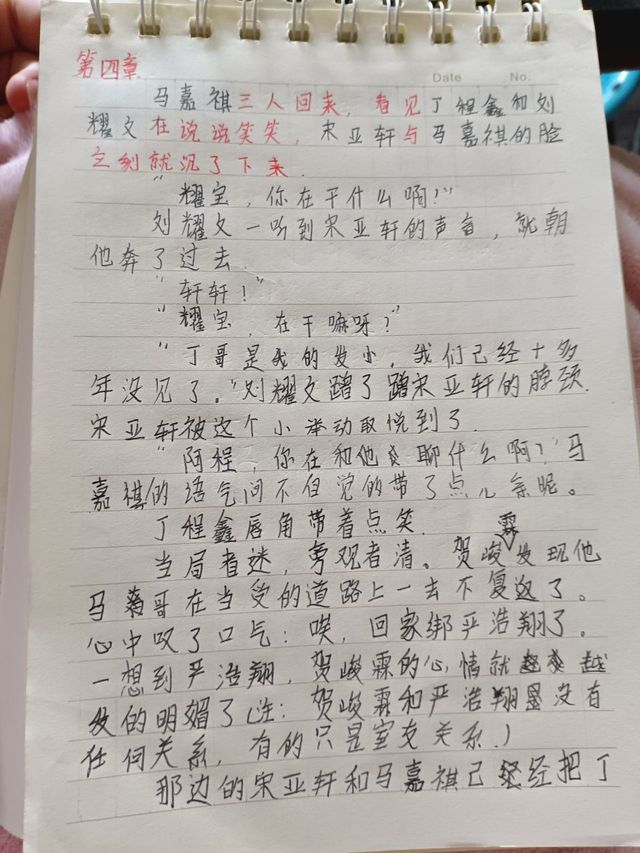 Date No.
第四章
马嘉祺三人回来，看见丁程鑫和刘
耀文在说说笑笑，宋亚轩与马嘉祺的脸
立刻就沉了下来.
“耀宝，你在干什么啊？”
刘耀文一听到宋亚轩的声音，就朝
他奔了过去.
“轩轩！”
“耀宝，在干嘛呀？”
“丁哥是我的发小，我们已经十多
年没见了。”刘耀文蹭了蹭宋亚轩的脖颈.
宋亚轩被这个小举动取悦到了.
“阿程，你在和他聊什么啊？”马
嘉祺的语气间不自觉的带了点儿亲昵。
丁程鑫唇角带着点笑.
当局者迷，旁观者清。贺峻霖发现他
马哥在当受的道路上一去不复返了。
心中叹了口气：唉，回家绑严浩翔了。
一想到严浩翔，贺峻霖的心情就越
发的明媚了（注：贺峻霖和严浩翔没有
任何关系，有的只是室友关系.）
那边的宋亚轩和马嘉祺已经把丁